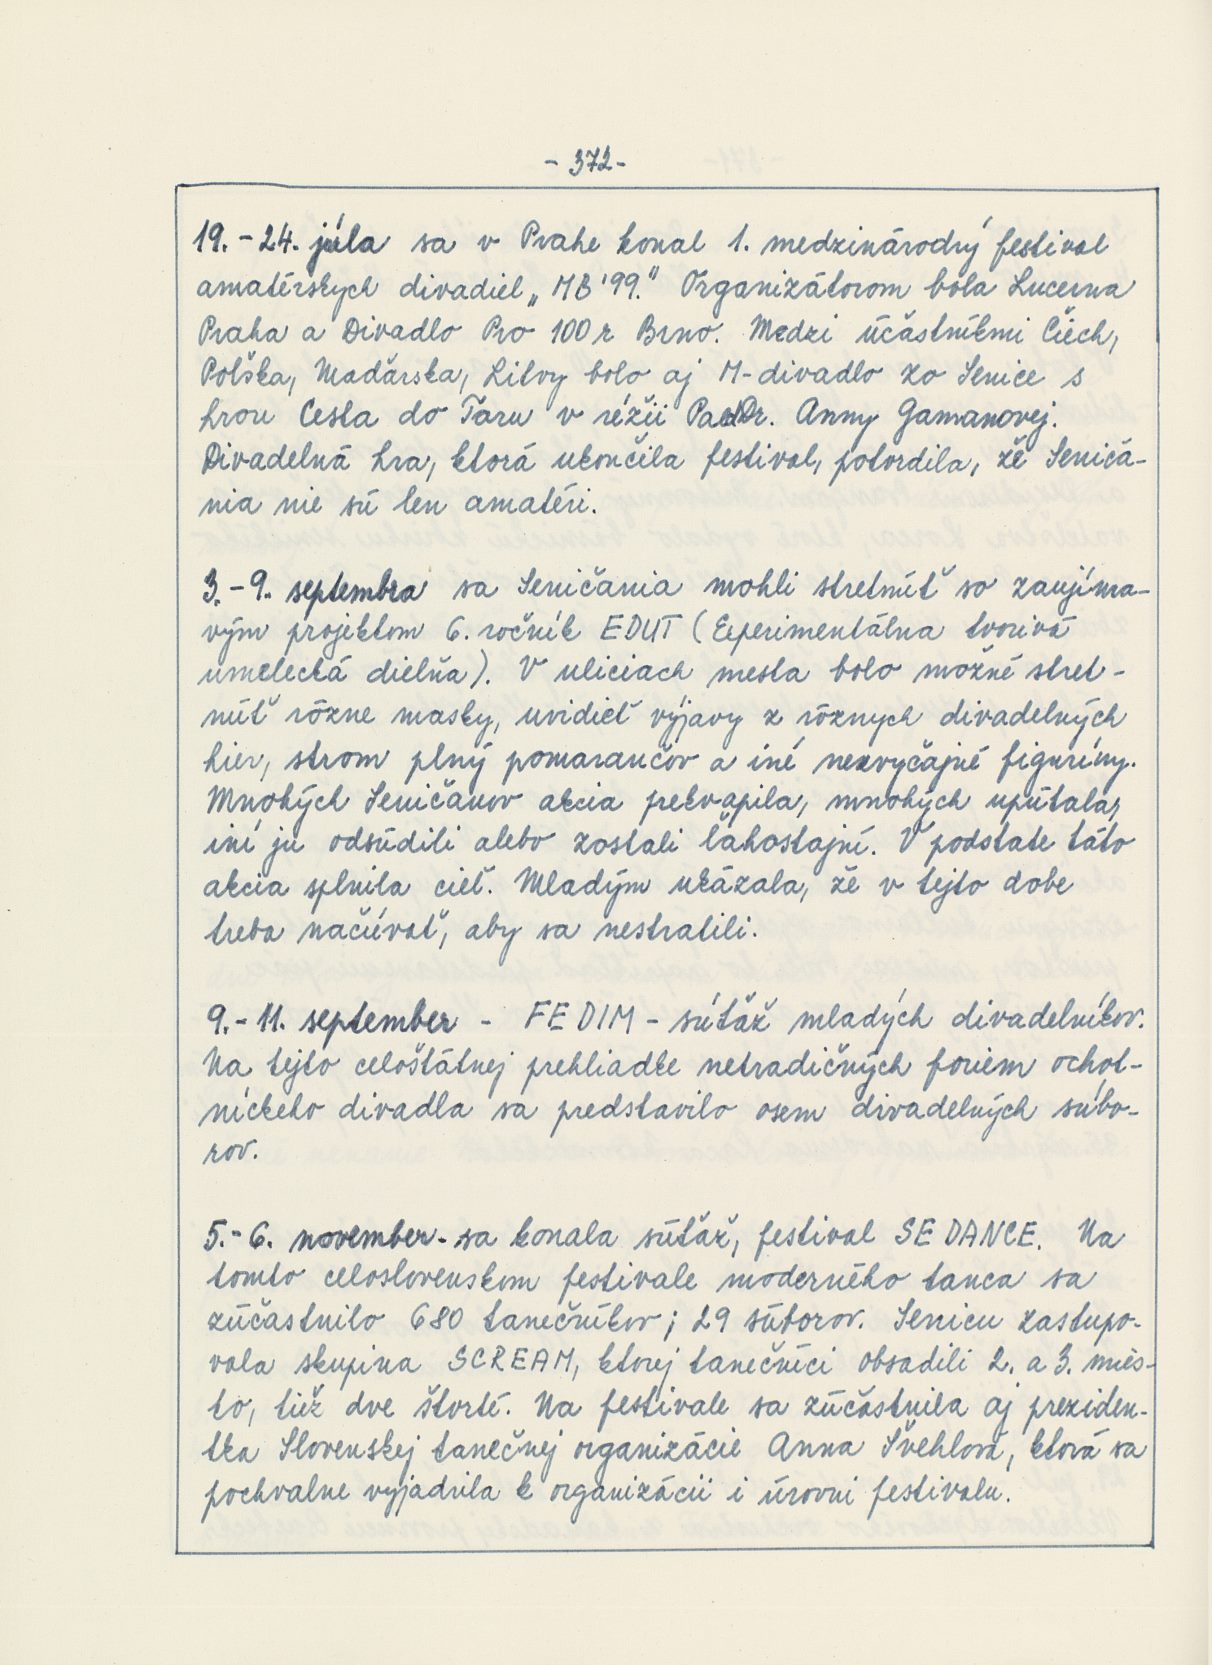 - 372 -
19. - 24. júla sa v Prahe konal 1. medzinárodný festival
amatérskych divadiel „MB '99." Organizátorom bola Lucerna
Praha a Divadlo Pro 100 r Brno. Medzi účastníkmi Čiech,
Poľska, Maďarska, Litvy bolo aj M-divadlo zo Senice s
hrou Cesta do Taru v réžii PaedDr. Anny Gamanovej.
Divadelná hra, ktorá ukončila festival, potvrdila, že Seniča-
nia nie sú len amatéri.
3. - 9. septembra sa Seničania mohli stretnúť so zaujíma-
vým projektom 6. ročník EDUT (Experimentálna tvorivá
umelecká dielňa). V uliciach mesta bolo možné stret-
núť rôzne masky, uvidieť výjavy z rôznych divadelných
hier, strom plný pomarančov a iné nezvyčajné figuríny.
Mnohých Seničanov akcia prekvapila, mnohých upútala,
iní ju odsúdili alebo zostali ľahostajní. V podstate táto
akcia splnila cieľ. Mladým ukázala, že v tejto dobe
treba načúvať, aby sa nestratili.
9. - 11. september - FEDIM - súťaž mladých divadelníkov.
Na tejto celoštátnej prehliadke netradičných foriem ochot-
níckeho divadla sa predstavilo osem divadelných súbo-
rov.
5. - 6. november - sa konala súťaž, festival SE DANCE. Na
tomto celoslovenskom festivale moderného tanca sa
zúčastnilo 680 tanečníkov; 29 súborov. Senicu zastupo-
vala skupina SCREAM, ktorej tanečníci obsadili 2. a 3. mies-
to, tiež dve štvrté. Na festivale sa zúčastnila aj preziden-
tka Slovenskej tanečnej organizácie Anna Švehlová, ktorá sa
pochvalne vyjadrila k organizácii i úrovni festivalu.